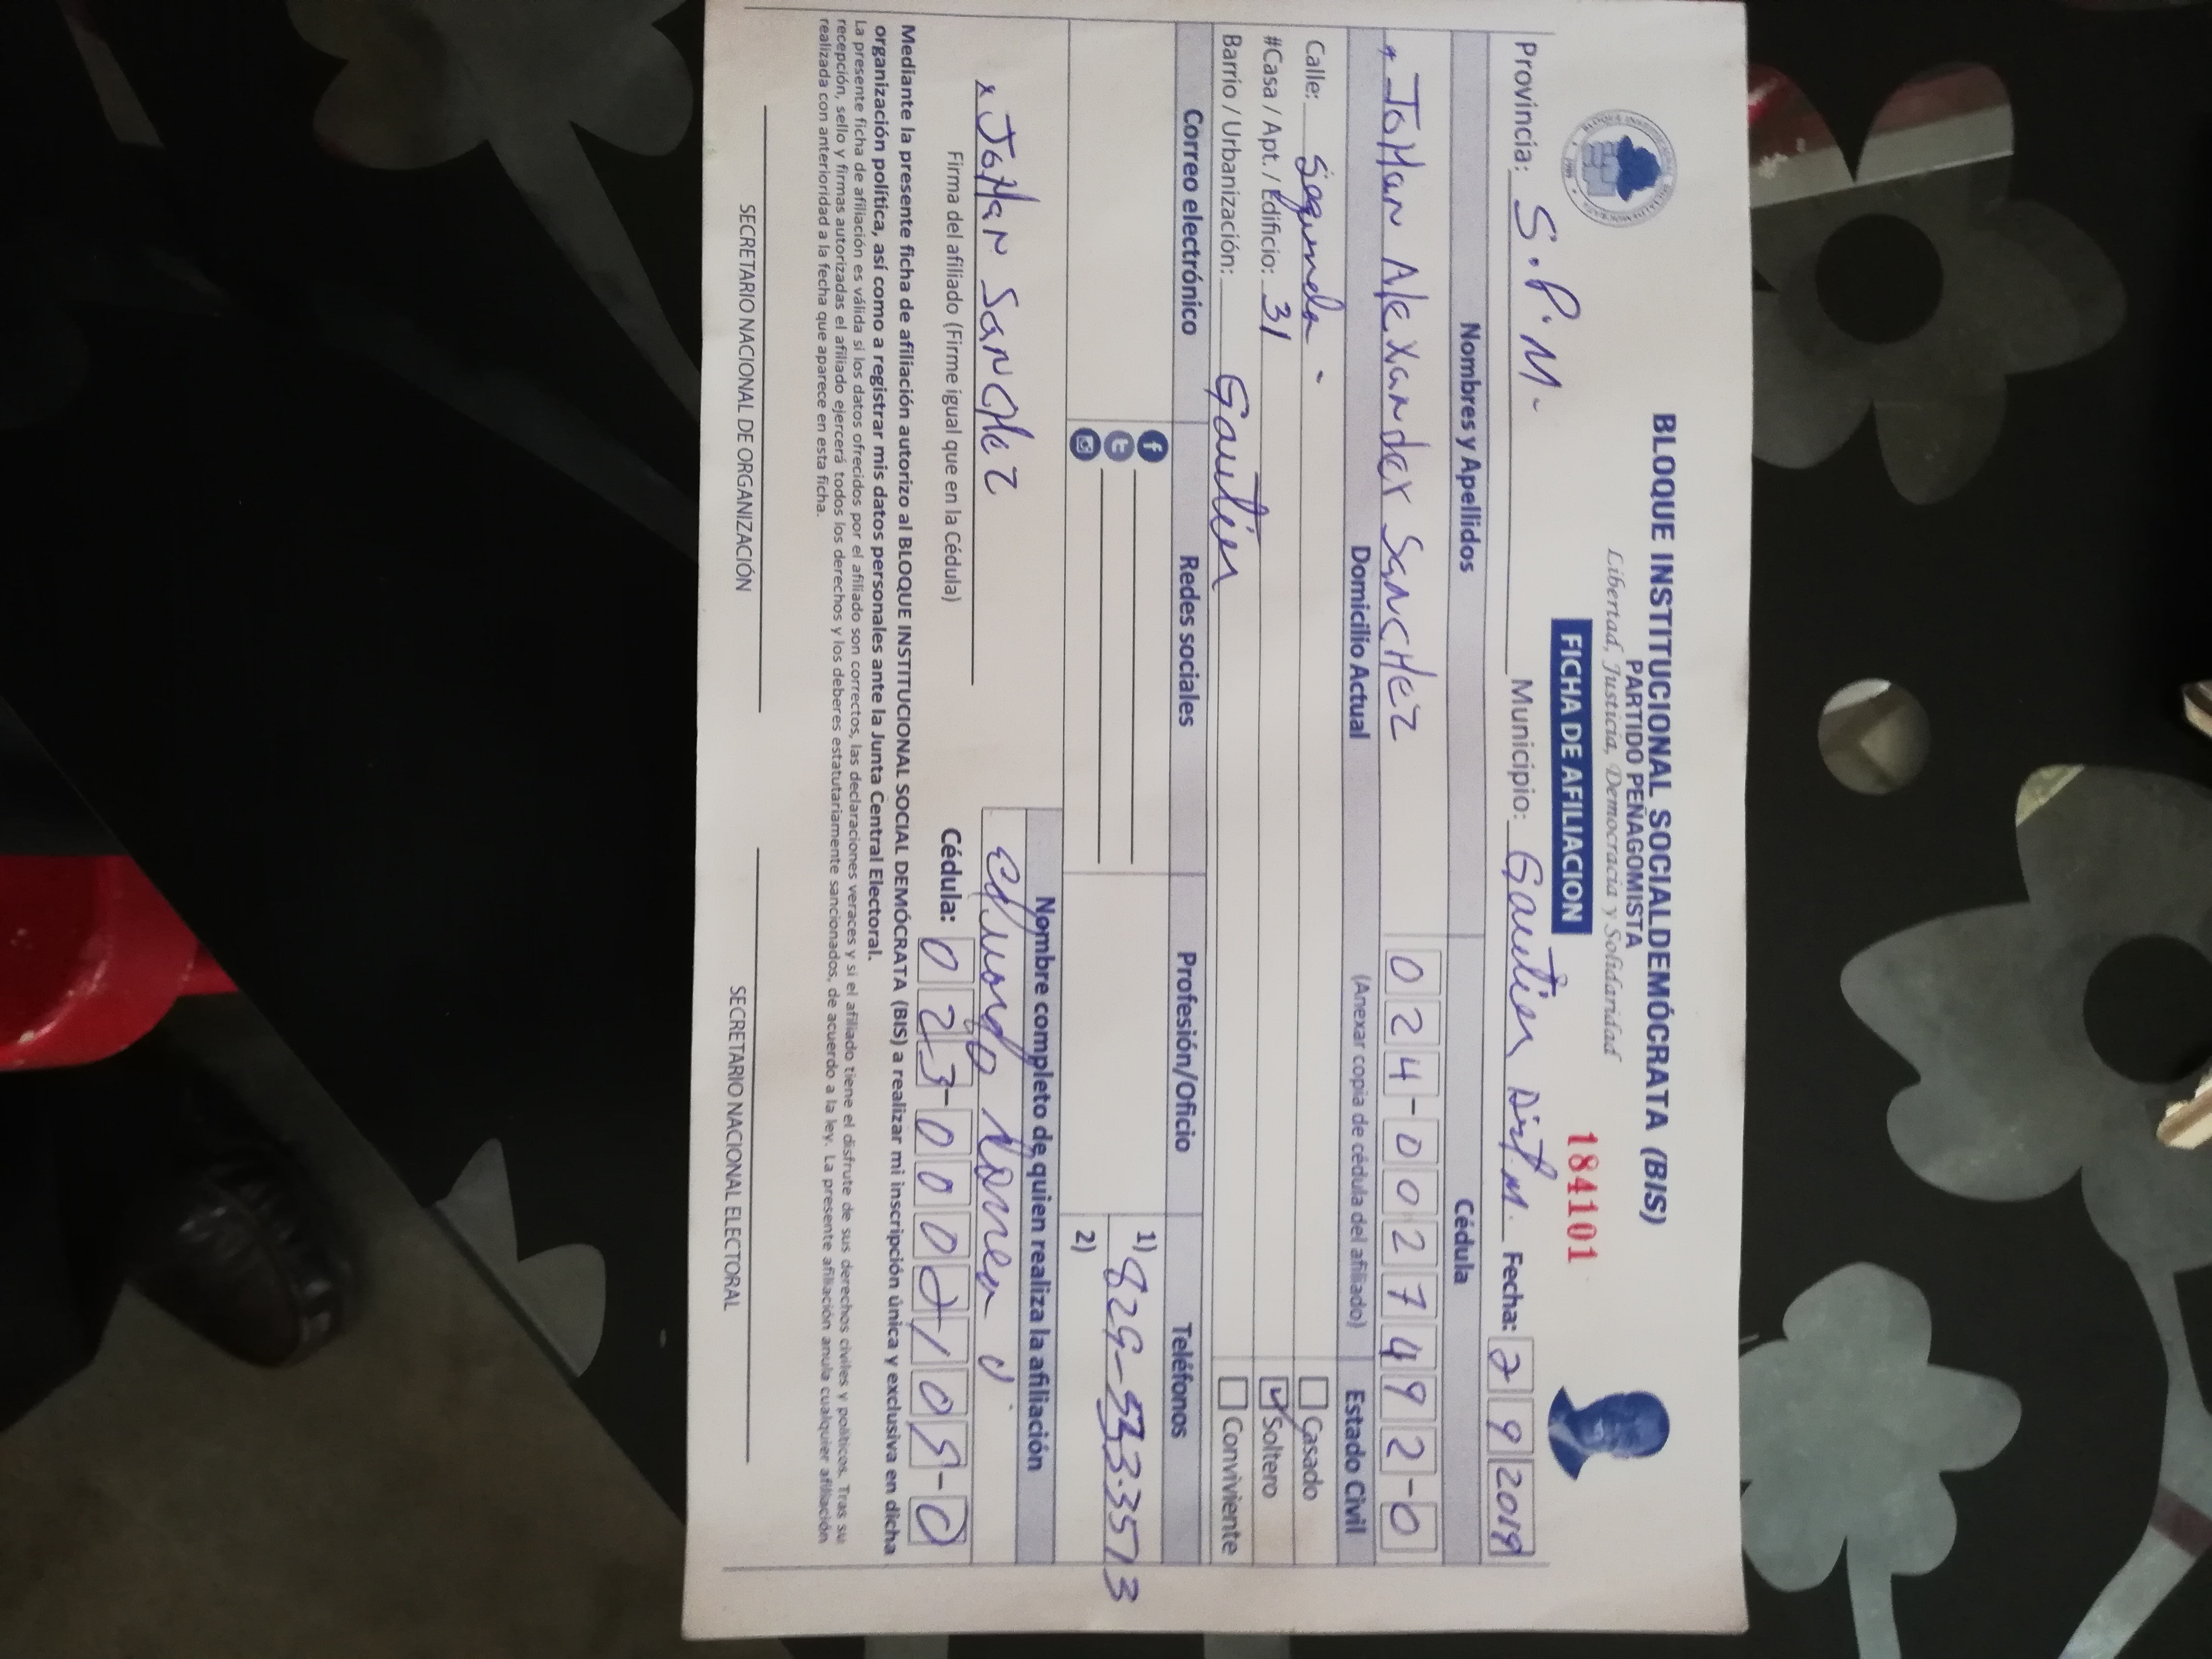 BLOQUE INSTITUCIONAL SOCIALDEMÓCRATA (BIS)
PARTIDO PEÑAGOMISTA
Libertad, Justicia, Democracia y Solidaridad
FICHA DE AFILIACION
184101
Provincia: S.P.M. Municipio: Gautier Dist. M. Fecha: 2 9 2019
Nombres y Apellidos Cédula
x JoHan Alexander SancHez 024-0027492-0
Domicilio Actual (Anexar copia de cédula del afiliado) Estado Civil
Calle: Segunda Casado
#Casa / Apt. / Edificio: 31 Soltero
Barrio / Urbanización: Gautier Conviviente
Correo electrónico Redes sociales Profesión/Oficio Teléfonos
1) 829-533-3513
2)
Nombre completo de quien realiza la afiliación
x JoHan SancHez
Firma del afiliado (Firme igual que en la Cédula) Cédula:
Mediante la presente ficha de afiliación autorizo al BLOQUE INSTITUCIONAL SOCIAL DEMÓCRATA (BIS) a realizar mi inscripción única y exclusiva en dicha
organización política, así como a registrar mis datos personales ante la Junta Central Electoral.
La presente ficha de afiliación es válida si los datos ofrecidos por el afiliado son correctos, las declaraciones veraces y si el afiliado tiene el disfrute de sus derechos civiles y políticos. Tras su
recepción, sello y firmas autorizadas el afiliado ejercerá todos los derechos y los deberes estatutariamente sancionados, de acuerdo a la ley. La presente afiliación anula cualquier afiliación
realizada con anterioridad a la fecha que aparece en esta ficha.
SECRETARIO NACIONAL DE ORGANIZACIÓN SECRETARIO NACIONAL ELECTORAL